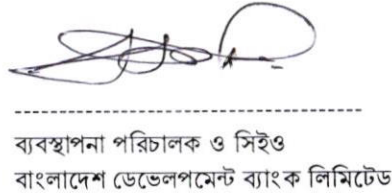 ব্যবস্থাপনা পরিচালক ও সিইও
বাংলাদেশ ডেভেলপমেন্ট ব্যাংক লিমিটেড